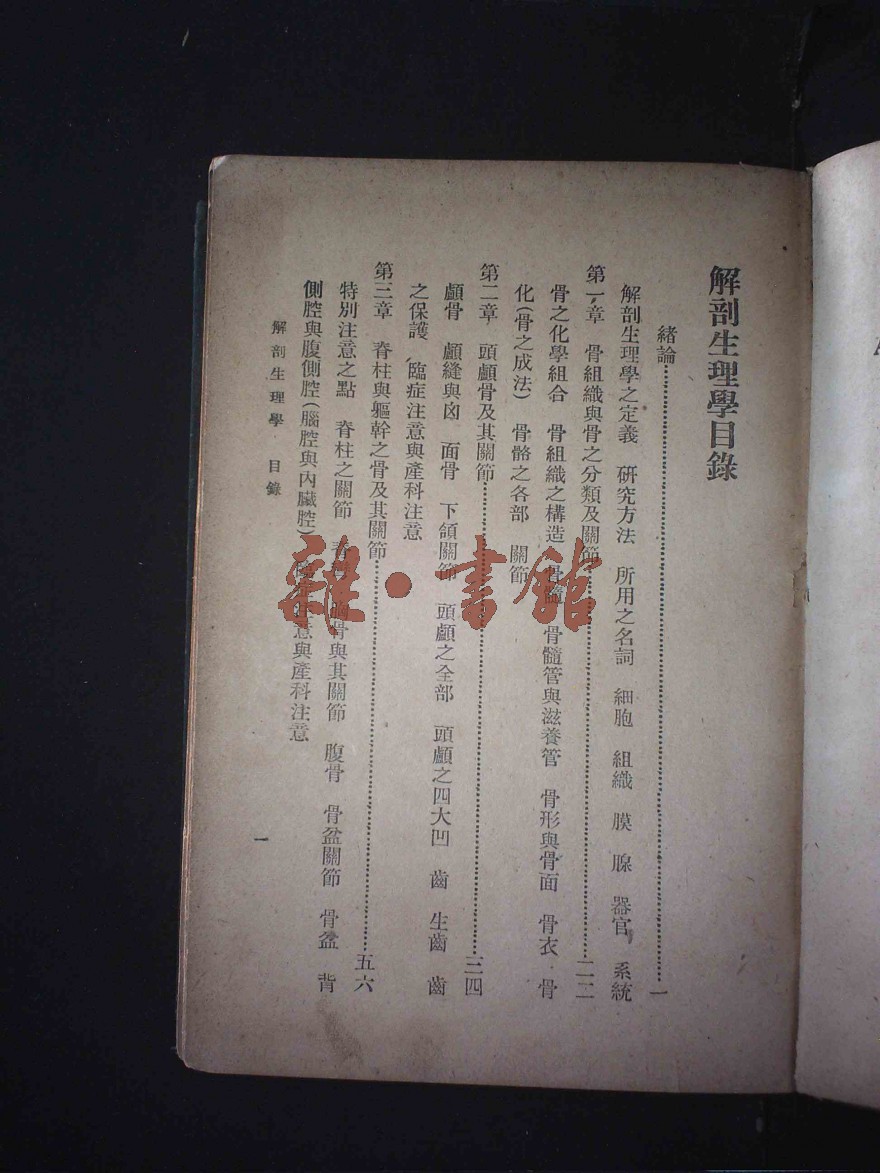 解剖生理學目錄
緒論……一
解剖生理學之定義 研究方法 所用之名詞 細胞 組織 膜 腺 器官 系統
第一章 骨組織與骨之分類及關節……二二
骨之化學組合 骨組織之構造 骨髓 骨髓管與滋養管 骨形與骨面 骨衣 骨
化(骨之成法) 骨骼之各部 關節
第二章 頭顱骨及其關節……三四
顱骨 顱縫與囟 面骨 下頜關節 頭顱之全部 頭顱之四大凹 齒 生齒 齒
之保護 臨症注意與產科注意
第三章 脊柱與軀幹之骨及其關節……五六
特別注意之點 脊柱之關節 胸骨與其關節 腹骨 骨盆關節 骨盆 背
側腔與腹側腔(腦腔與內臟腔) 臨症注意與產科注意
解剖生理學 目錄
一
雜·書館